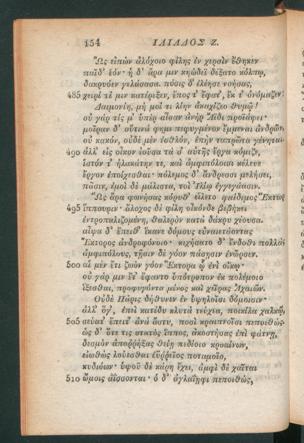 154 ΙΛΙΑΔΟΣ Ζ.
Ὣς εἰπὼν ἀλόχοιο φίλης ἐν χερσὶν ἔθηκεν
παῖδ' ἑόν· ἡ δ' ἄρα μιν κηώδεϊ δέξατο κόλπῳ,
δακρυόεν γελάσασα. πόσις δ' ἐλέησε νοήσας,
485 χειρί τέ μιν κατέρεξεν, ἔπος τ' ἔφατ', ἔκ τ' ὀνόμαζεν·
Δαιμονίη, μή μοί τι λίην ἀκαχίζεο θυμῷ!
οὐ γάρ τίς μ' ὑπὲρ αἶσαν ἀνὴρ Ἄϊδι προϊάψει·
μοῖραν δ' οὔτινά φημι πεφυγμένον ἔμμεναι ἀνδρῶν,
οὐ κακόν, οὐδὲ μὲν ἐσθλόν, ἐπὴν ταπρῶτα γένηται.
490 ἀλλ' εἰς οἶκον ἰοῦσα τὰ σ' αὐτῆς ἔργα κόμιζε,
ἱστόν τ' ἠλακάτην τε, καὶ ἀμφιπόλοισι κέλευε
ἔργον ἐποίχεσθαι· πόλεμος δ' ἄνδρεσσι μελήσει,
πᾶσιν, ἐμοὶ δὲ μάλιστα, τοὶ Ἰλίῳ ἐγγεγάασιν.
Ὣς ἄρα φωνήσας κόρυθ' εἵλετο φαίδιμος Ἕκτωρ
495 ἵππουριν· ἄλοχος δὲ φίλη οἶκόνδε βεβήκει
ἐντροπαλιζομένη, θαλερὸν κατὰ δάκρυ χέουσα.
αἶψα δ' ἔπειθ' ἵκανε δόμους εὐναιετάοντας
Ἕκτορος ἀνδροφόνοιο· κιχήσατο δ' ἔνδοθι πολλὰς
ἀμφιπόλους, τῇσιν δὲ γόον πάσῃσιν ἐνῶρσεν.
500 αἱ μὲν ἔτι ζωὸν γόον Ἕκτορα ᾧ ἐνὶ οἴκῳ·
οὐ γάρ μιν ἔτ' ἔφαντο ὑπότροπον ἐκ πολέμοιο
ἵξεσθαι, προφυγόντα μένος καὶ χεῖρας Ἀχαιῶν.
Οὐδὲ Πάρις δήθυνεν ἐν ὑψηλοῖσι δόμοισιν·
ἀλλ' ὅγ', ἐπεὶ κατέδυ κλυτὰ τεύχεα, ποικίλα χαλκῷ,
505 σεύατ' ἔπειτ' ἀνὰ ἄστυ, ποσὶ κραιπνοῖσι πεποιθώς.
ὡς δ' ὅτε τις στατὸς ἵππος, ἀκοστήσας ἐπὶ φάτνῃ,
δεσμὸν ἀποῤῥήξας θείῃ πεδίοιο κροαίνων,
εἰωθὼς λούεσθαι ἐϋῤῥεῖος ποταμοῖο,
κυδιόων· ὑψοῦ δὲ κάρη ἔχει, ἀμφὶ δὲ χαῖται
510 ὤμοις ἀΐσσονται· ὁ δ' ἀγλαΐηφι πεποιθώς,